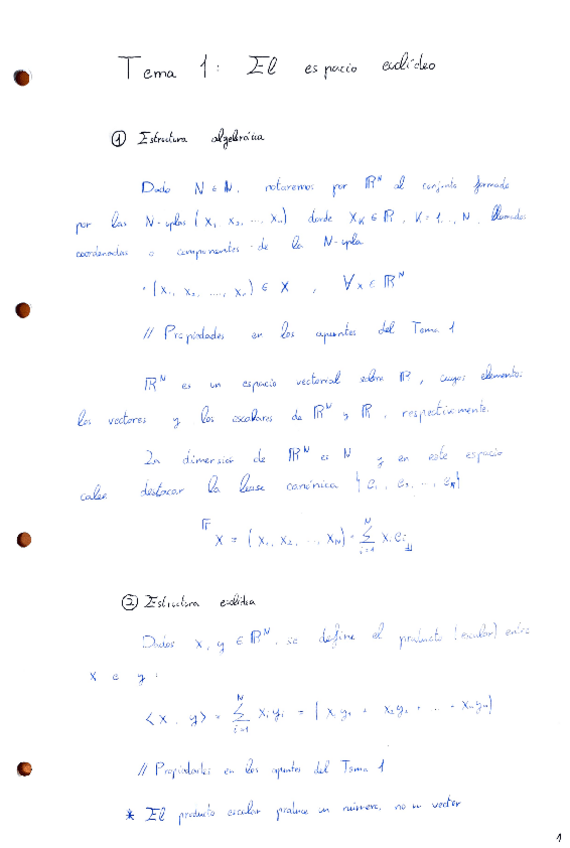 Tema 1: El espacio euclídeo
① Estructura algebráica
Dado N ∈ ℕ, notaremos por ℝᴺ al conjunto formado
por las N-uplas (x₁, x₂, ..., xₙ) donde xₖ ∈ ℝ, K = 1, .., N, llamados
coordenadas o componentes de la N-upla
· (x₁, x₂, ...., xₙ) ∈ X , ∀x ∈ ℝᴺ
// Propiedades en los apuntes del Tema 1
ℝᴺ es un espacio vectorial sobre ℝ, cuyos elementos:
los vectores y los escalares de ℝᴺ y ℝ, respectivamente.
La dimensión de ℝᴺ es N y en este espacio
cabe destacar la base canónica {e₁, e₂, .., eₙ}
x = (x₁, x₂, ..., x_N) = ∑ᵢ₌₁ᴺ xᵢ eᵢ
② Estructura euclídea
Dados x, y ∈ ℝᴺ, se define el producto (escalar) entre
x e y :
⟨x, y⟩ = ∑ᵢ₌₁ᴺ xᵢyᵢ = (x₁y₁ + x₂y₂ + .. + xₙyₙ)
// Propiedades en los apuntes del Tema 1
* El producto escalar produce un número, no un vector
1